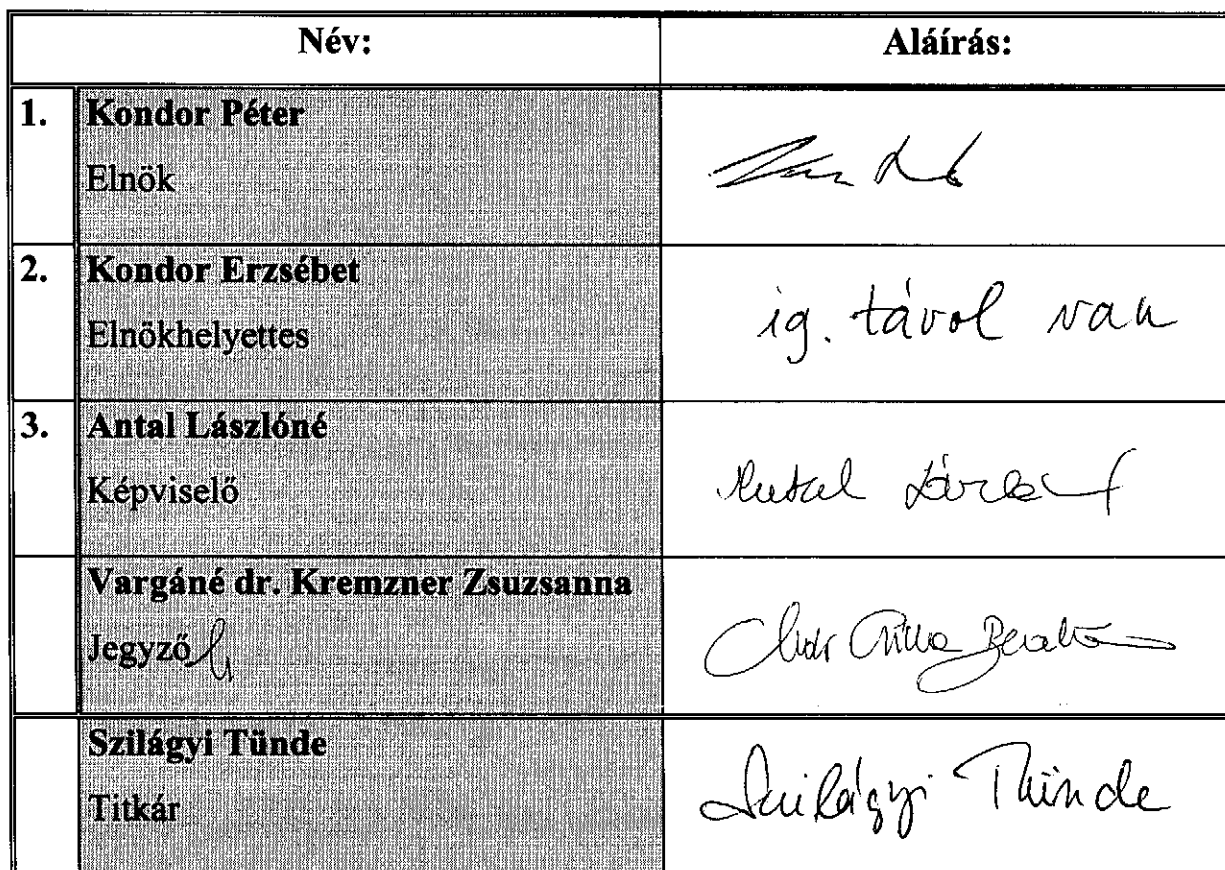 Név: Aláírás:
1. Kondor Péter
Elnök
2. Kondor Erzsébet
Elnökhelyettes
ig. távol van
3. Antal Lászlóné
Képviselő
Antal
Vargáné dr. Kremzner Zsuzsanna
Jegyző
Szilágyi Tünde
Titkár
Szilágyi Tünde